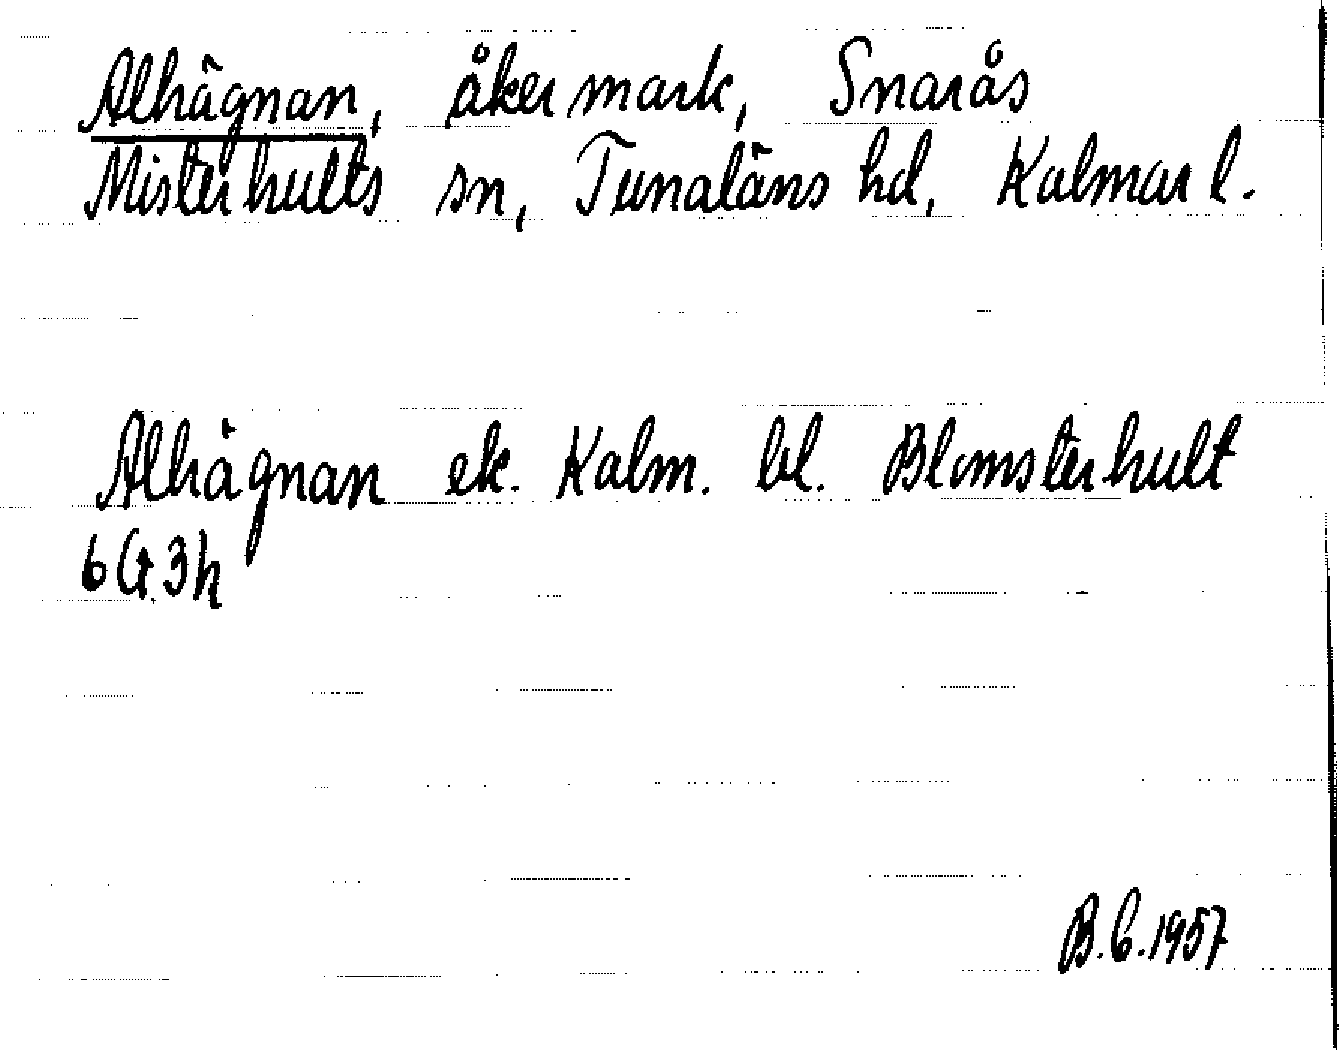 Alhägnan, åkermark, Snarås
Misterhults sn, Tunaläns hd, Kalmar l.
Alhägnan ek. Kalm. bl. Blomsterhult
6G3h
B.C.1957